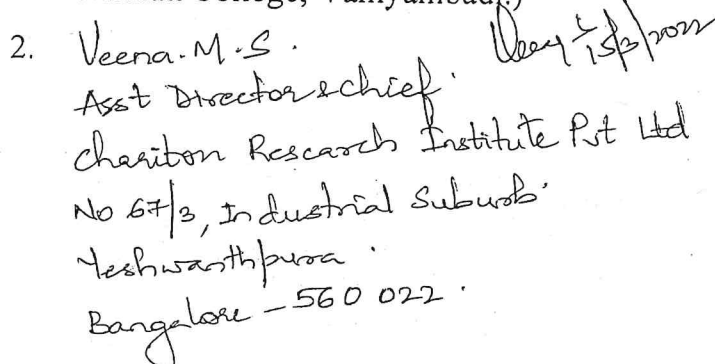 College, Vaniyambadi.)
2. Veena.M.S.
15/3/2022
Asst Director & chief.
Chariton Research Institute Pvt Ltd
No 67/3, Industrial Suburb.
Yeshwanthpura.
Bangalore - 560 022.